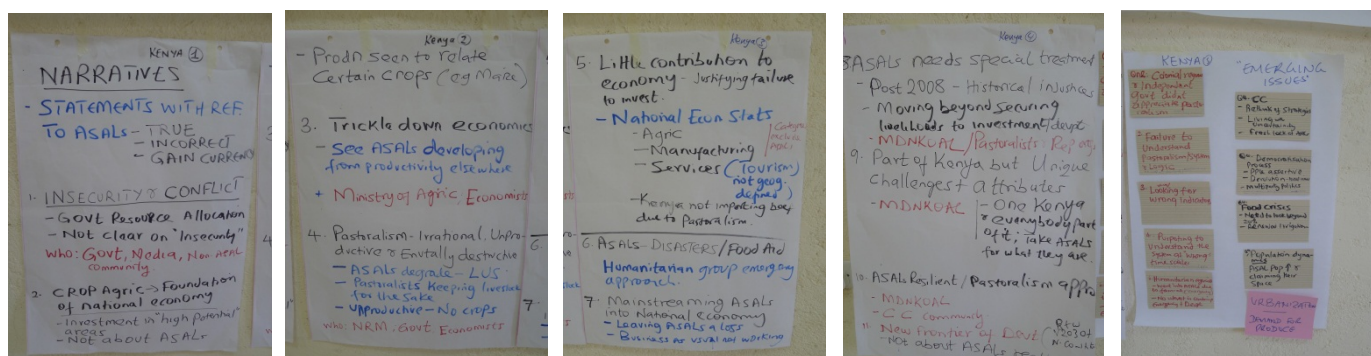 KENYA 1
NARRATIVES
- STATEMENTS WITH REF.
TO ASALs - TRUE
INCORRECT
GAIN CURRENCY
1. INSECURITY & CONFLICT
- GOVT RESOURCE ALLOCATION
- Not CLEAR ON "Insecurity"
WHO: GOVT, MEDIA, NON-ASAL
COMMUNITY.
2. CROP AGRIC → FOUNDATION
OF national economy
- Investment in "high potential"
areas
- Not about ASALs
Kenya 2
- Prodn seen to relate
Certain crops (eg Maize)
3. Trickle down economics
- See ASALs developing
from productivity elsewhere
+ Ministry of Agric, Economists
4. Pastoralism - Irrational, Unpro-
ductive & Envtally destructive
- ASALs degrade - LUS
- Pastoralists Keeping livestock
for the sake
- Unproductive - No crops
who: NRM. Govt Economists
6.
7.
Kenya 3
5. Little contribution to
economy - Justifying failure
to invest.
- National Econ Stats
- Agric
- Manufacturing
- Services (Tourism)
not geog.
defined)
- Kenya not importing beef
due to Pastoralism.
6. ASALs - DISASTERS/FOOD AID
Humanitarian group emerging
approach.
7. Mainstreaming ASALs
into National economy
- Leaving ASALs a loss
- Business as usual not working
Kenya 4
8 ASALs needs special treatment
- Post 2008 - Historical injustices
- Moving beyond securing
livelihoods to investment/devpt
- MDNKOAL/Pastoralists
9. Part of Kenya but Unique
Challenges + attributes
- MDNKOAL
- One Kenya
& everybody part
of it, take ASALs
for what they are
10. ASALs Resilient/Pastoralism
- MDNKOAL
- CC community
11. New frontier of Devt
- Not about ASALs
KENYA
"EMERGING
ISSUES"
one Colonial
& Independent
Govt didnt
appreciate
2. Failure to
Understand
Pastoralism System
& Logic
3. Looking for
Wrong Indicators
understand the
system at wrong
time scale
CC
- Rethink strategies
- Living w/
Uncertainty
- Democratization
Process
- Devolution
Multiparty Politics
Food crisis
- Need to look beyond
Irrigation
Population
ASAL Pop ↑ &
claiming their
Space
URBANIZATION
DEMAND FOR
PRODUCE